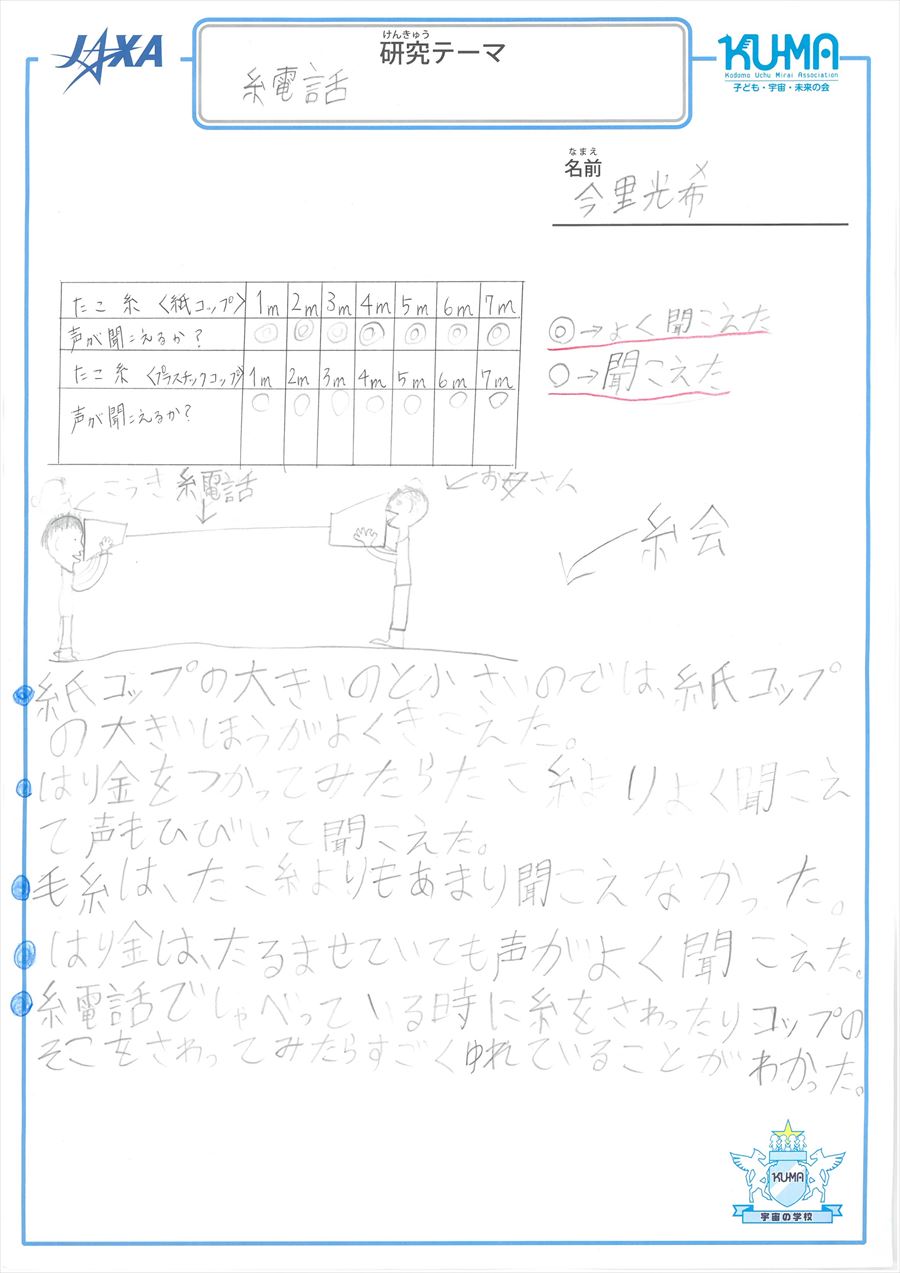 JAXA
けんきゅう
研究テーマ
糸電話
KU-MA
Kodomo Uchu Mirai Association
子ども・宇宙・未来の会
なまえ
名前
今里光希
たこ糸〈紙コップ〉 1m 2m 3m 4m 5m 6m 7m
声が聞こえるか? ◎ ◎ ◎ ◎ ◎ ◎ ◎
たこ糸〈プラスチックコップ〉 1m 2m 3m 4m 5m 6m 7m
声が聞こえるか? ○ ○ ○ ○ ○ ○ ○
◎→よく聞こえた
○→聞こえた
こうき 糸電話 お母さん
糸会
紙コップの大きいのと小さいのでは、紙コップ
の大きいほうがよくきこえた。
はり金をつかってみたらたこ糸よりよく聞こえ
て声もひびいて聞こえた。
毛糸は、たこ糸よりもあまり聞こえなかった。
はり金は、たるませていても声がよく聞こえた。
糸電話でしゃべっている時に糸をさわったりコップの
そこをさわってみたらすごくゆれていることがわかった。
KU-MA
宇宙の学校